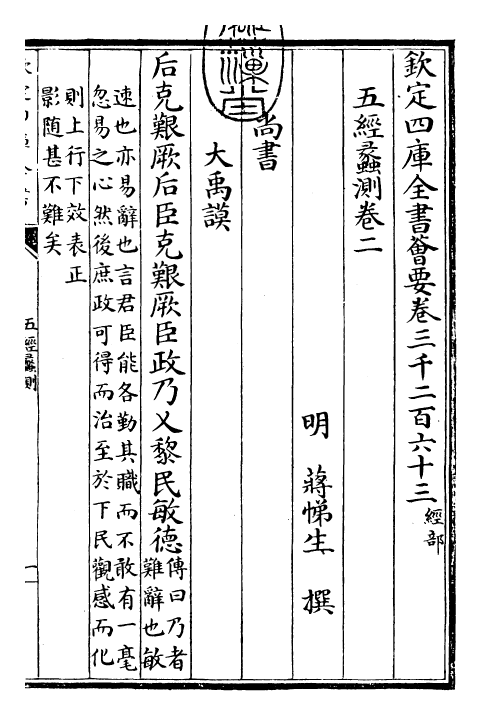 欽定四庫全書薈要卷三千二百六十三經部
五經蠡測卷二
明 蔣悌生 撰
尚書
大禹謨
后克艱厥后臣克艱厥臣政乃乂黎民敏德
傳曰乃者
難辭也敏
速也亦易辭也言君臣能各勤其職而不敢有一毫
忽易之心然後庶政可得而治至於下民觀感而化
則上行下效表正
影隨甚不難矣
五經蠡測
一